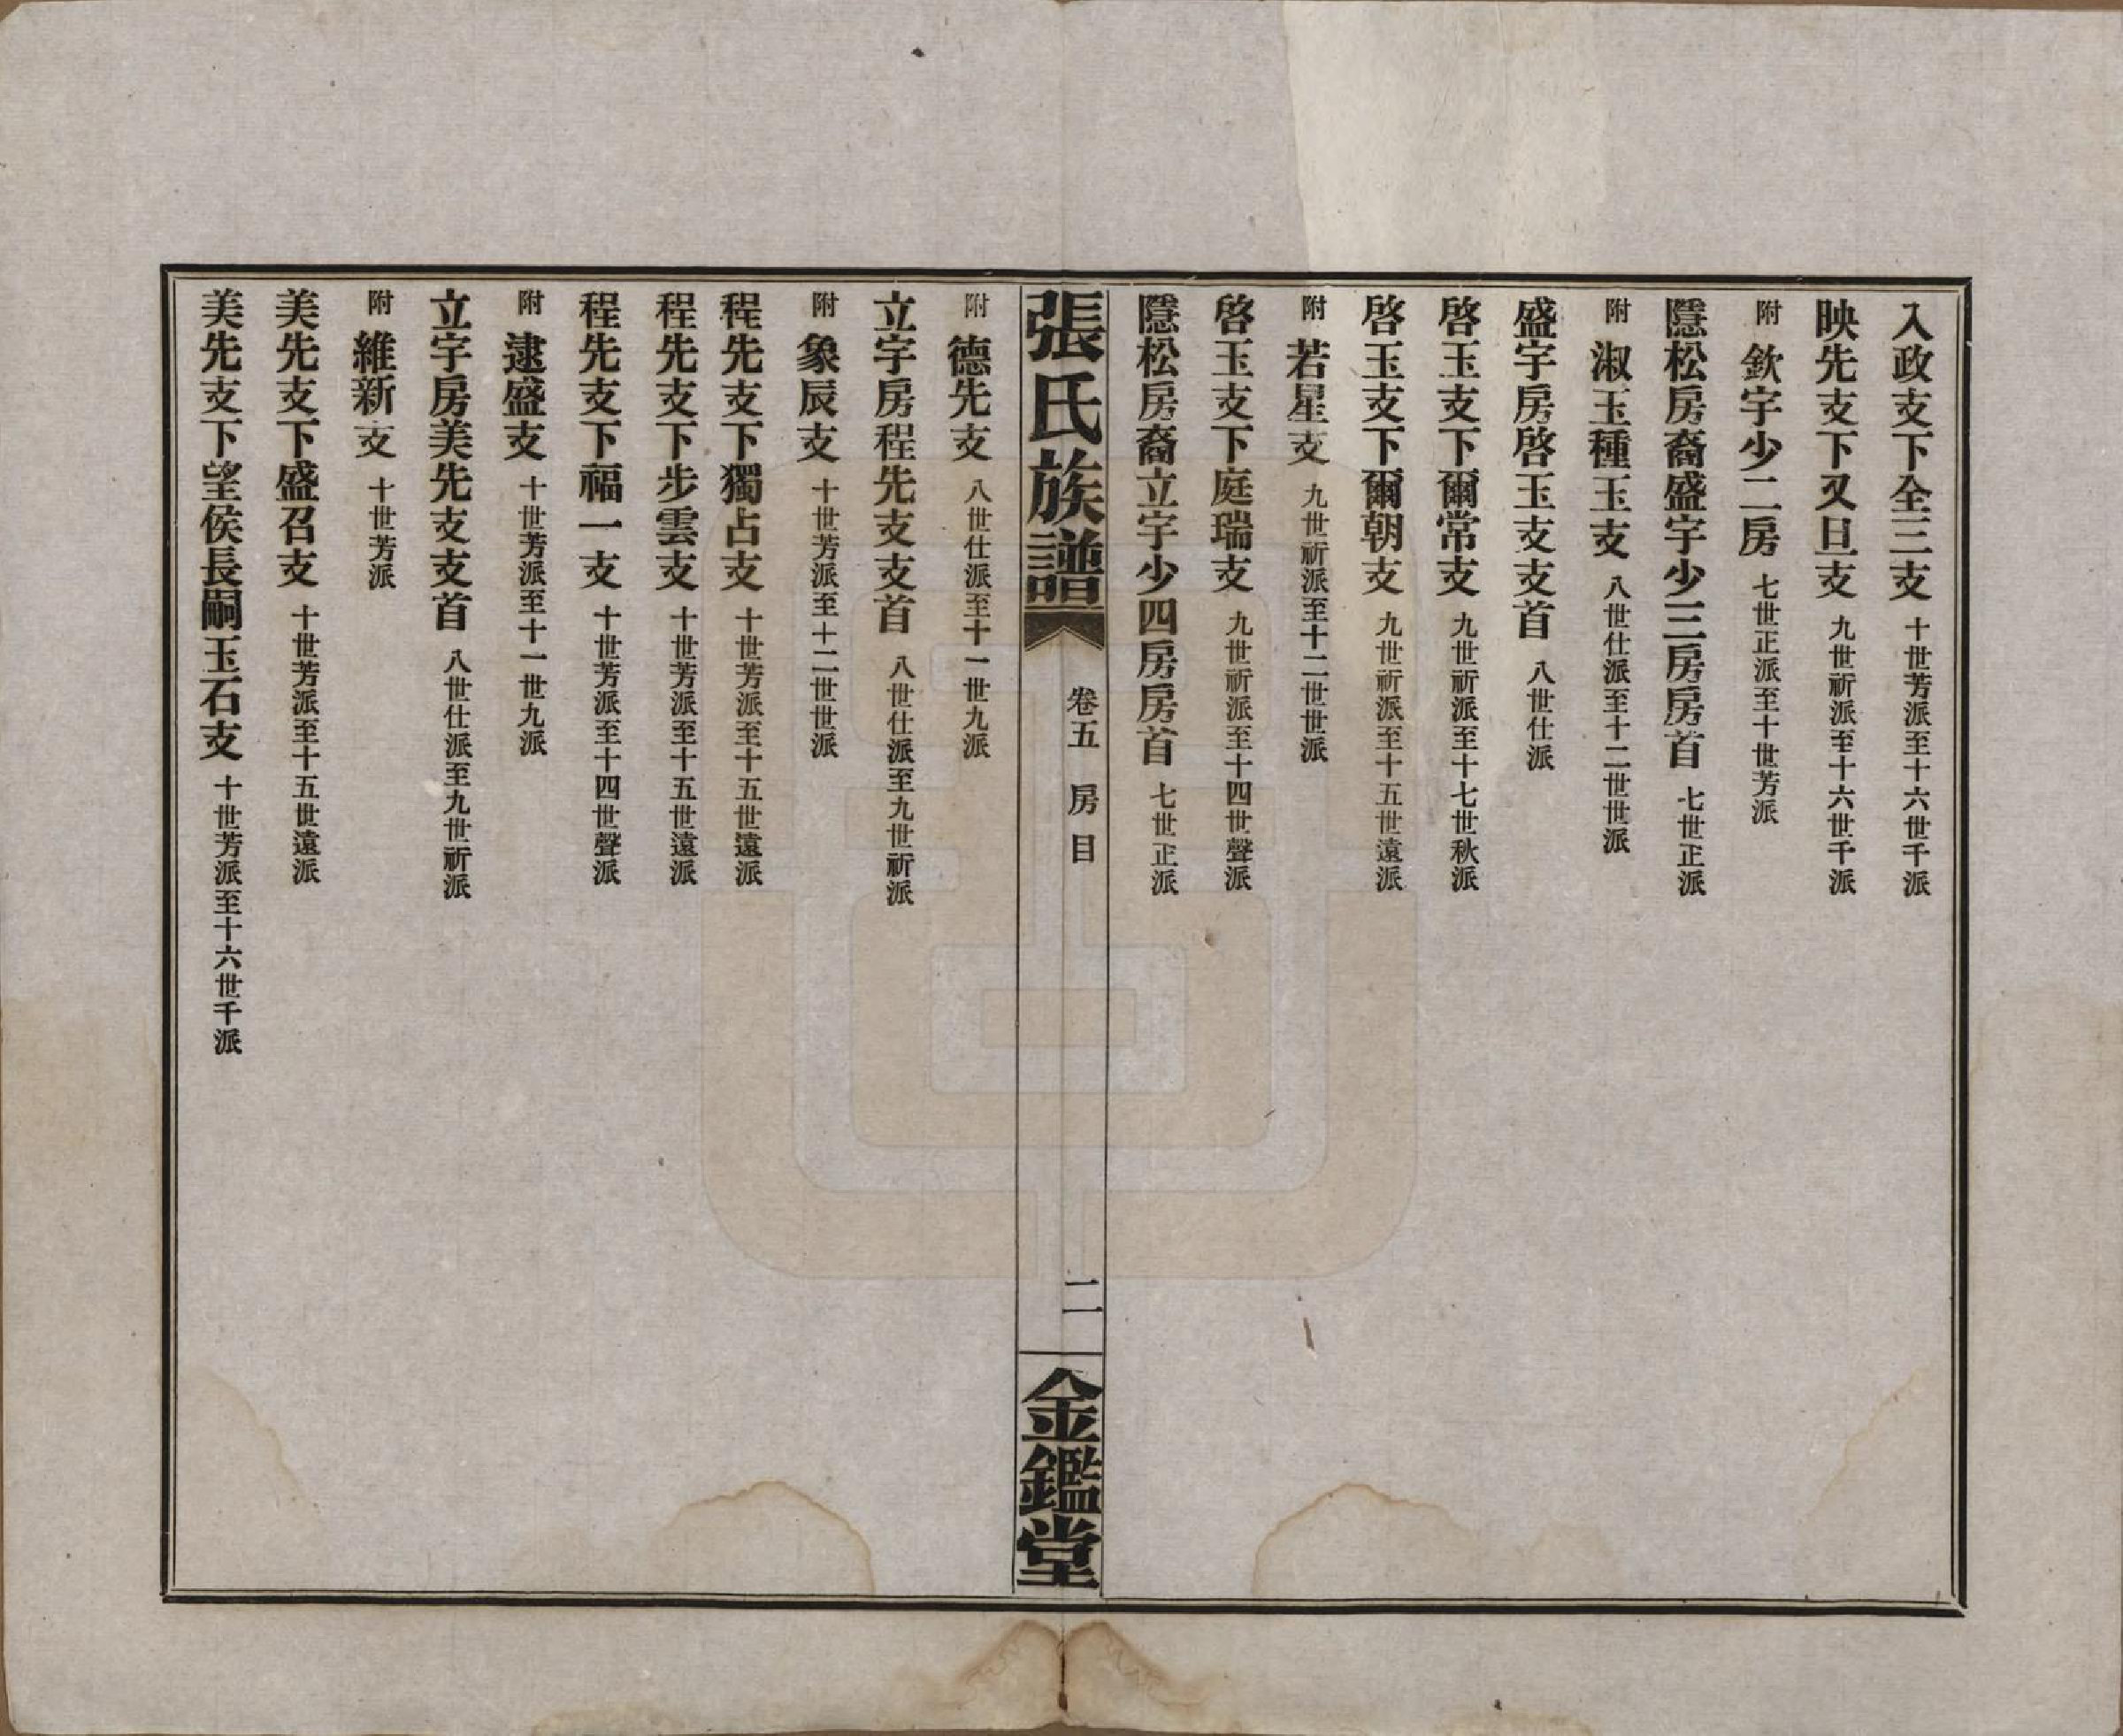 入政支下全三支 十世芳派至十六世千派
映先支下又旦支 九世祈派至十六世千派
附 欽宇少二房 七世正派至十世芳派
隱松房裔盛宇少三房房首 七世正派
附 淑玉種玉支 八世仕派至十二世世派
盛宇房啓玉支支首 八世仕派
啓玉支下爾常支 九世祈派至十七世秋派
啓玉支下爾朝支 九世祈派至十五世遠派
附 若星支 九世祈派至十二世世派
啓玉支下庭瑞支 九世祈派至十四世聲派
隱松房裔立宇少四房房首 七世正派
張氏族譜 卷五 房目 二 金鑑堂
附 德先支 八世仕派至十一世九派
立宇房程先支支首 八世仕派至九世祈派
附 象辰支 十世芳派至十二世世派
程先支下獨占支 十世芳派至十五世遠派
程先支下步雲支 十世芳派至十五世遠派
程先支下福一支 十世芳派至十四世聲派
附 逮盛支 十世芳派至十一世九派
立宇房美先支支首 八世仕派至九世祈派
附 維新支 十世芳派
美先支下盛召支 十世芳派至十五世遠派
美先支下望侯長嗣玉石支 十世芳派至十六世千派